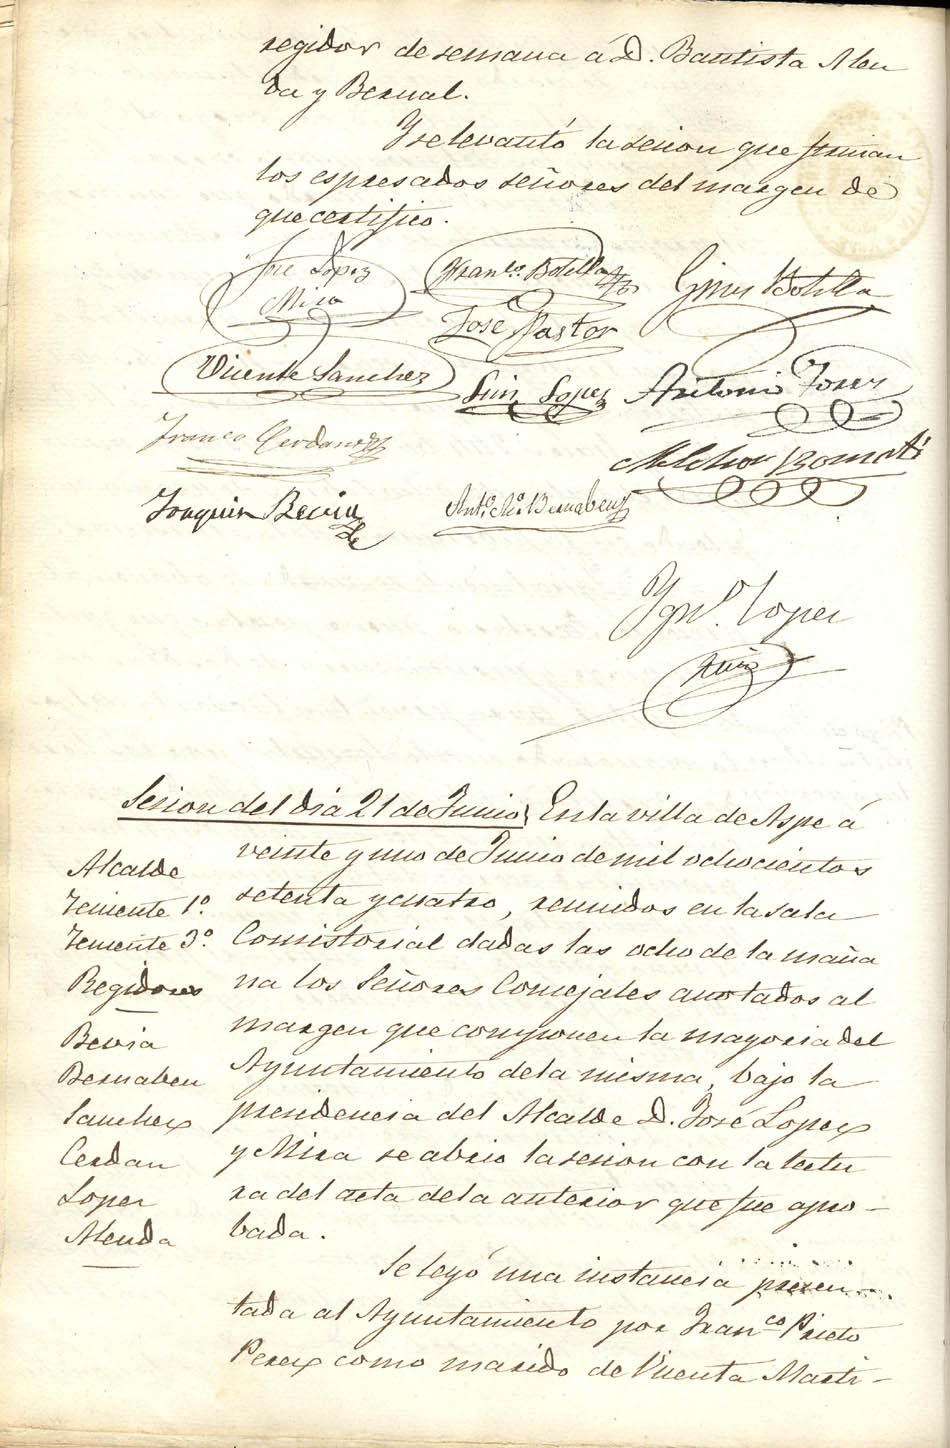 regidor de semana á D. Bautista Alen
da y Bernal.
Y se levantó la sesion que firman
los espresados señores del margen de
que certifico.
José Lopez
Mira
Franco. Botella
Gines Botella
José Pastor
Vicente Sanchez
Luis Lopez
Antonio
Franco Cerdan
Melchor
Joaquin Bevia
Anto. Ma. Bernabeu
Igno. Lopez
Ruiz
Sesion del dia 21 de Junio
En la villa de Aspe á
veinte y uno de Junio de mil ochocientos
setenta y cuatro, reunidos en la sala
Consistorial dadas las ocho de la maña
na los Señores Concejales anotados al
margen que componen la mayoria del
Ayuntamiento de la misma, bajo la
presidencia del Alcalde D. José Lopez
y Mira se abrio la sesion con la lectu
ra del acta de la anterior que fue apro-
bada.
Alcalde
Teniente 1o.
Teniente 3o.
Regidores
Bevia
Bernabeu
Sanchez
Cerdan
Lopez
Alenda
Se leyó una instancia presen-
tada al Ayuntamiento por Franco Prieto
Perez como marido de Vicenta Marti-